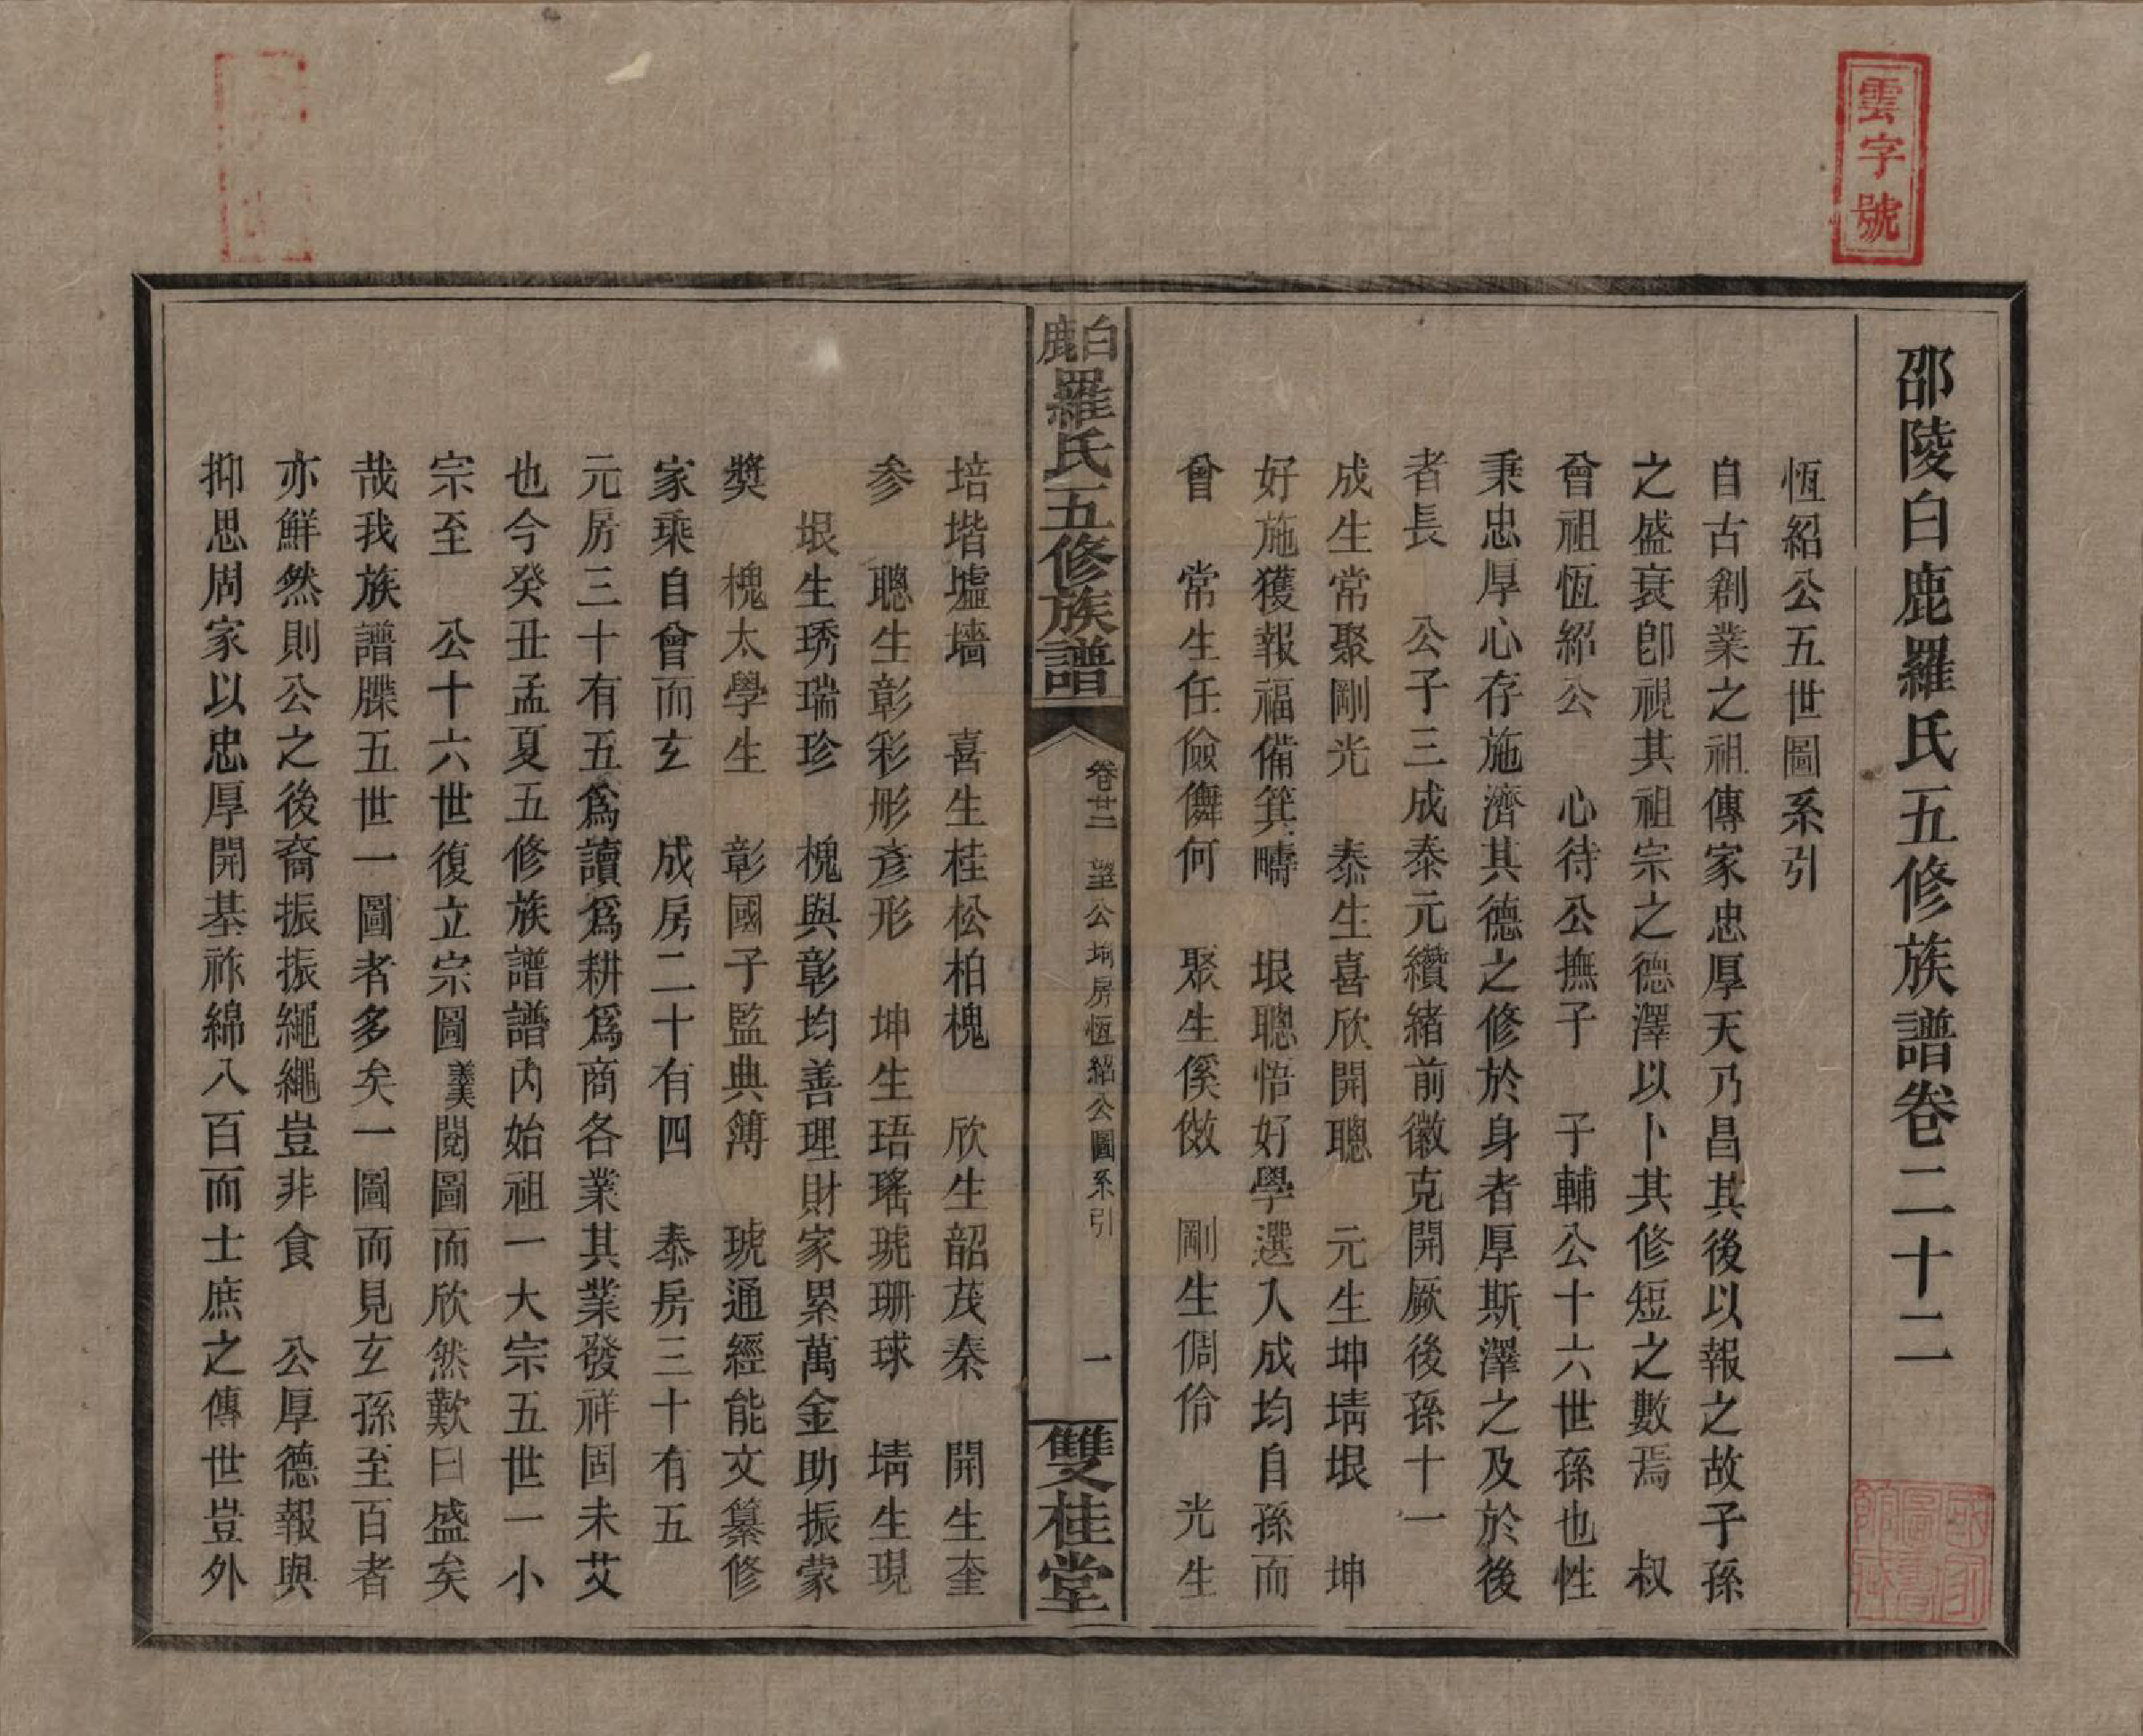 雲字號
邵陵白鹿羅氏五修族譜卷二十二
恆紹公五世圖系引
自古創業之祖傳家忠厚天乃昌其後以報之故子孫
之盛衰卽視其祖宗之德澤以卜其修短之數焉　叔
曾祖恆紹公　心待公撫子　子輔公十六世孫也性
秉忠厚心存施濟其德之修於身者厚斯澤之及於後
者長　公子三成泰元纘緒前徽克開厥後孫十一
成生常聚剛光　泰生喜欣開聰　元生坤堉垠　坤
好施獲報福備箕疇　垠聰悟好學選入成均自孫而
曾　常生任儉儛何　聚生傒傚　剛生倜伶　光生
培堦墟墻　喜生桂松柏槐　欣生韶茂秦　開生奎
參　聰生彰彩彤彥形　坤生珸瑤琥珊球　堉生現
垠生琇瑞珍　槐與彰均善理財家累萬金助振蒙
獎　槐太學生　彰國子監典簿　琥通經能文纂修
家乘自曾而玄　成房二十有四　泰房三十有五
元房三十有五爲讀爲耕爲商各業其業發祥固未艾
也今癸丑孟夏五修族譜譜內始祖一大宗五世一小
宗至　公十六世復立宗圖閱圖而欣然歎曰盛矣
哉我族譜牒五世一圖者多矣一圖而見玄孫至百者
亦鮮然則公之後裔振振繩繩豈非食　公厚德報與
抑思周家以忠厚開基祚綿八百而士庶之傳世豈外
白鹿羅氏五修族譜
卷廿二　望公坤房恆紹公圖系引　一
雙桂堂